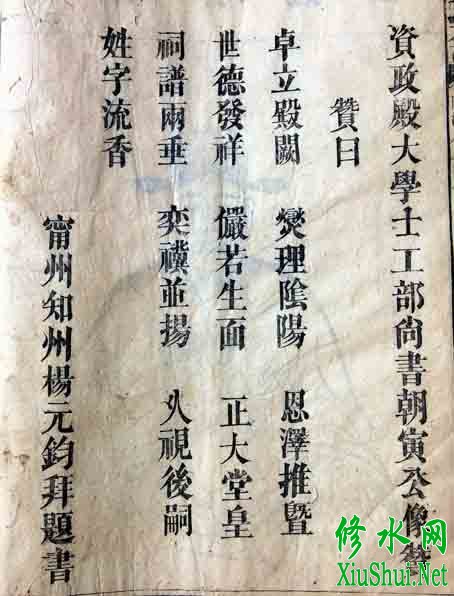 資政殿大學士工部尚書朝寅公像贊
贊曰
卓立殿闕 燮理陰陽 恩澤推暨
世德發祥 儼若生面 正大堂皇
祠譜兩垂 奕禩並揚 久視後嗣
姓字流香
甯州知州楊元鈞拜題書
修水网
XiuShui.Net